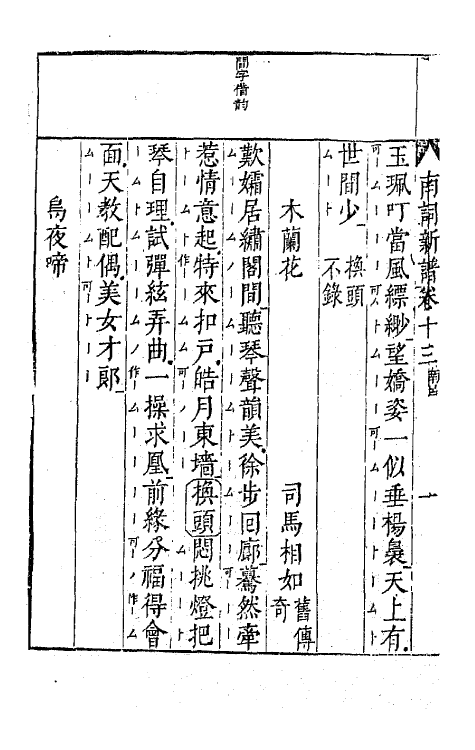 南詞新譜卷十三 南呂 一
玉珮叮當風縹緲望嬌姿一似垂楊裊天上有
世間少 換頭不錄
木蘭花 司馬相如 舊傳奇
間字借韵
歎孀居繡閣間聽琴聲韻美徐步回廊驀然牽
惹情意起特來扣戶皓月東墻 換頭 悶挑燈把
琴自理試彈絃弄曲一操求凰前緣分福得會
面天教配偶美女才郎
烏夜啼